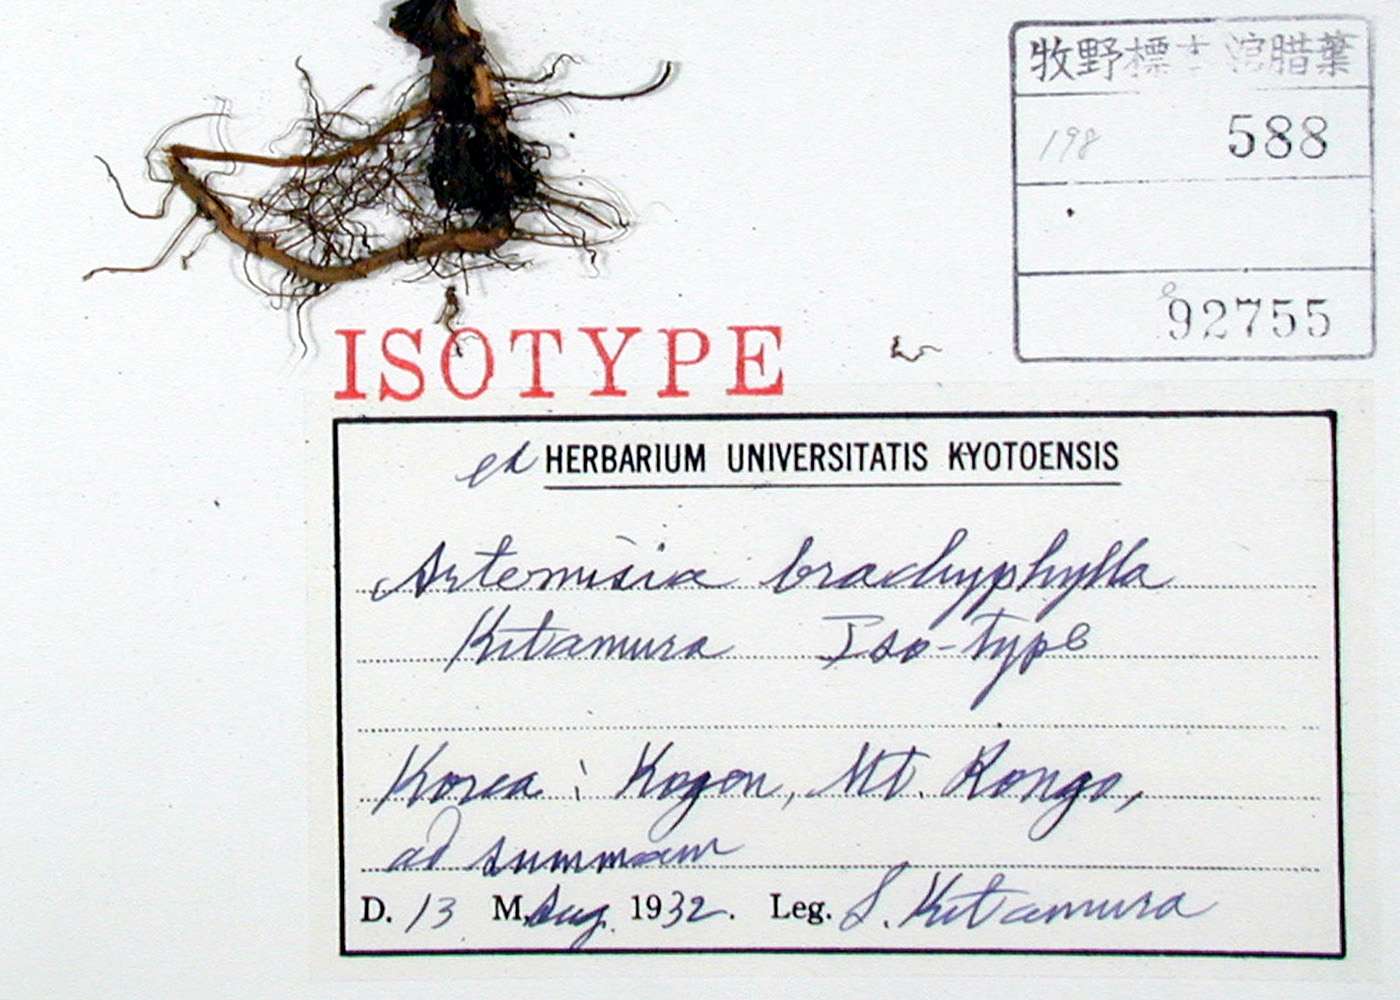 牧野標本 腊葉
198 588
92755
ISOTYPE
ex HERBARIUM UNIVERSITATIS KYOTOENSIS
Artemisia brachyphylla
Kitamura Iso-type
Korea: Kogen, Mt. Kongo,
ad summum
D. 13 M. Aug. 1932. Leg. S. Kitamura